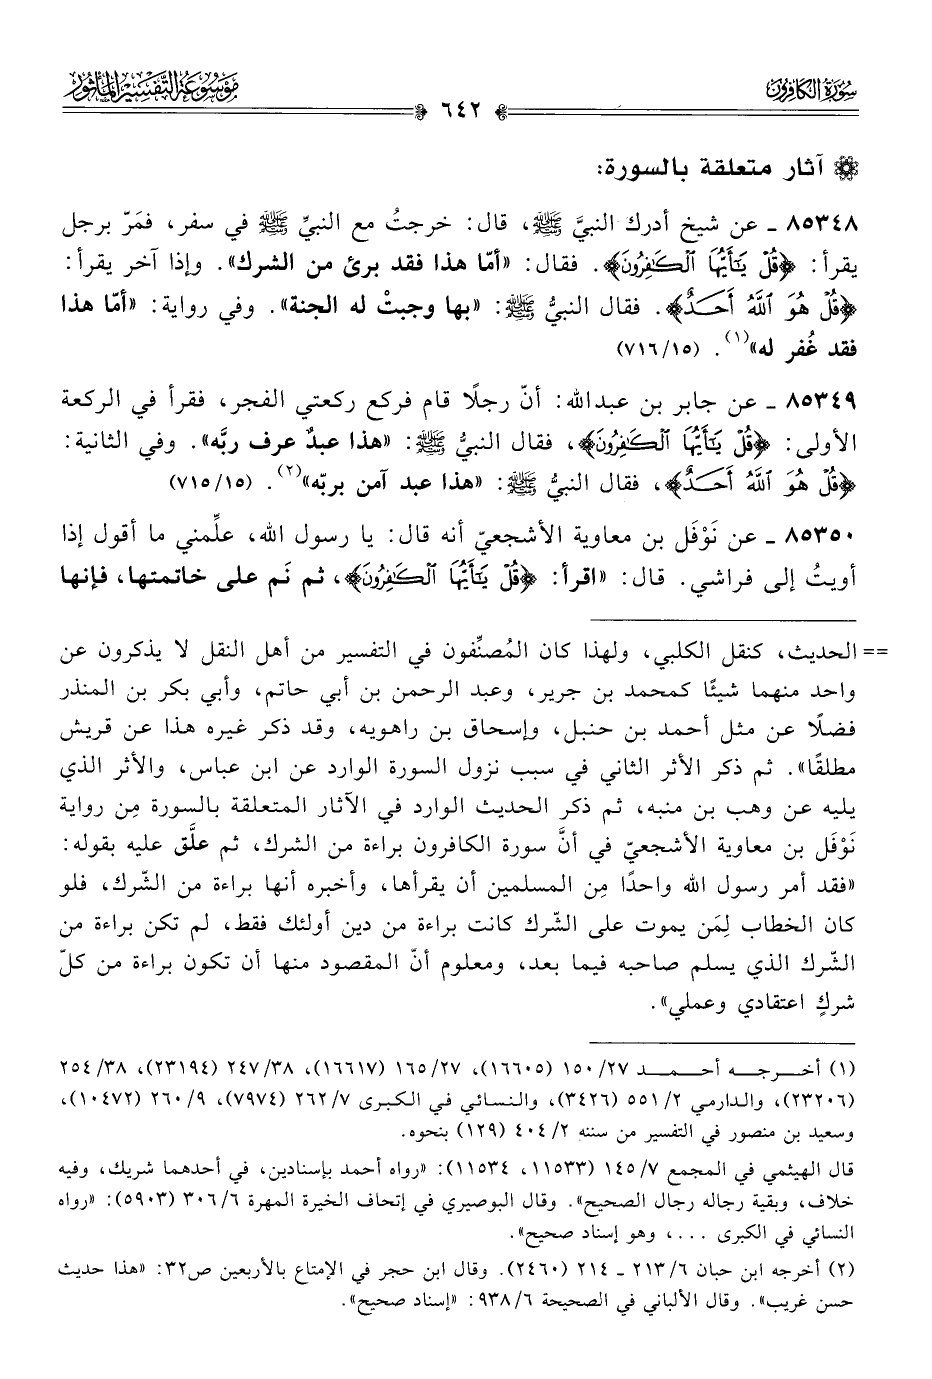 سُورَةُ الكَافِرُونَ
٦٤٢
مَوْسُوعَةُ التَّفْسِيرِ المَأْثُورِ
آثار متعلقة بالسورة:
٨٥٣٤٨ ـ عن شيخ أدرك النبيَّ ﷺ، قال: خرجتُ مع النبيِّ ﷺ في سفر، فمَرّ برجل
يقرأ: ﴿قُلْ يَٰٓأَيُّهَا ٱلْكَٰفِرُونَ﴾. فقال: «أمّا هذا فقد برئ من الشرك». وإذا آخر يقرأ:
﴿قُلْ هُوَ ٱللَّهُ أَحَدٌ﴾. فقال النبيُّ ﷺ: «بها وجبتْ له الجنة». وفي رواية: «أمّا هذا
فقد غُفر له»(١). (٧١٦/١٥)
٨٥٣٤٩ ـ عن جابر بن عبدالله: أنّ رجلًا قام فركع ركعتي الفجر، فقرأ في الركعة
الأولى: ﴿قُلْ يَٰٓأَيُّهَا ٱلْكَٰفِرُونَ﴾، فقال النبيُّ ﷺ: «هذا عبدٌ عرف ربَّه». وفي الثانية:
﴿قُلْ هُوَ ٱللَّهُ أَحَدٌ﴾، فقال النبيُّ ﷺ: «هذا عبد آمن بربّه»(٢). (٧١٥/١٥)
٨٥٣٥٠ ـ عن نَوْفَل بن معاوية الأشجعيّ أنه قال: يا رسول الله، علِّمني ما أقول إذا
أويتُ إلى فراشي. قال: «اقرأ: ﴿قُلْ يَٰٓأَيُّهَا ٱلْكَٰفِرُونَ﴾، ثم نَم على خاتمتها، فإنها
== الحديث، كنقل الكلبي، ولهذا كان المُصنِّفون في التفسير من أهل النقل لا يذكرون عن
واحد منهما شيئًا كمحمد بن جرير، وعبد الرحمن بن أبي حاتم، وأبي بكر بن المنذر
فضلًا عن مثل أحمد بن حنبل، وإسحاق بن راهويه، وقد ذكر غيره هذا عن قريش
مطلقًا». ثم ذكر الأثر الثاني في سبب نزول السورة الوارد عن ابن عباس، والأثر الذي
يليه عن وهب بن منبه، ثم ذكر الحديث الوارد في الآثار المتعلقة بالسورة مِن رواية
نَوْفَل بن معاوية الأشجعيّ في أنَّ سورة الكافرون براءة من الشرك، ثم علَّق عليه بقوله:
«فقد أمر رسول الله واحدًا مِن المسلمين أن يقرأها، وأخبره أنها براءة من الشّرك، فلو
كان الخطاب لِمَن يموت على الشّرك كانت براءة من دين أولئك فقط، لم تكن براءة من
الشّرك الذي يسلم صاحبه فيما بعد، ومعلوم أنّ المقصود منها أن تكون براءة من كلّ
شركٍ اعتقادي وعملي».
(١) أخرجه أحمد ٢٧/ ١٥٠ (١٦٦٠٥)، ٢٧/ ١٦٥ (١٦٦١٧)، ٣٨/ ٢٤٧ (٢٣١٩٤)، ٣٨/ ٢٥٤
(٢٣٢٠٦)، والدارمي ٢/ ٥٥١ (٣٤٢٦)، والنسائي في الكبرى ٧/ ٢٦٢ (٧٩٧٤)، ٩/ ٢٦٠ (١٠٤٧٢)،
وسعيد بن منصور في التفسير من سننه ٢/ ٤٠٤ (١٢٩) بنحوه.
قال الهيثمي في المجمع ٧/ ١٤٥ (١١٥٣٣، ١١٥٣٤): «رواه أحمد بإسنادين، في أحدهما شريك، وفيه
خلاف، وبقية رجاله رجال الصحيح». وقال البوصيري في إتحاف الخيرة المهرة ٦/ ٣٠٦ (٥٩٠٣): «رواه
النسائي في الكبرى ...، وهو إسناد صحيح».
(٢) أخرجه ابن حبان ٦/ ٢١٣ ـ ٢١٤ (٢٤٦٠). وقال ابن حجر في الإمتاع بالأربعين ص٣٢: «هذا حديث
حسن غريب». وقال الألباني في الصحيحة ٦/ ٩٣٨: «إسناد صحيح».